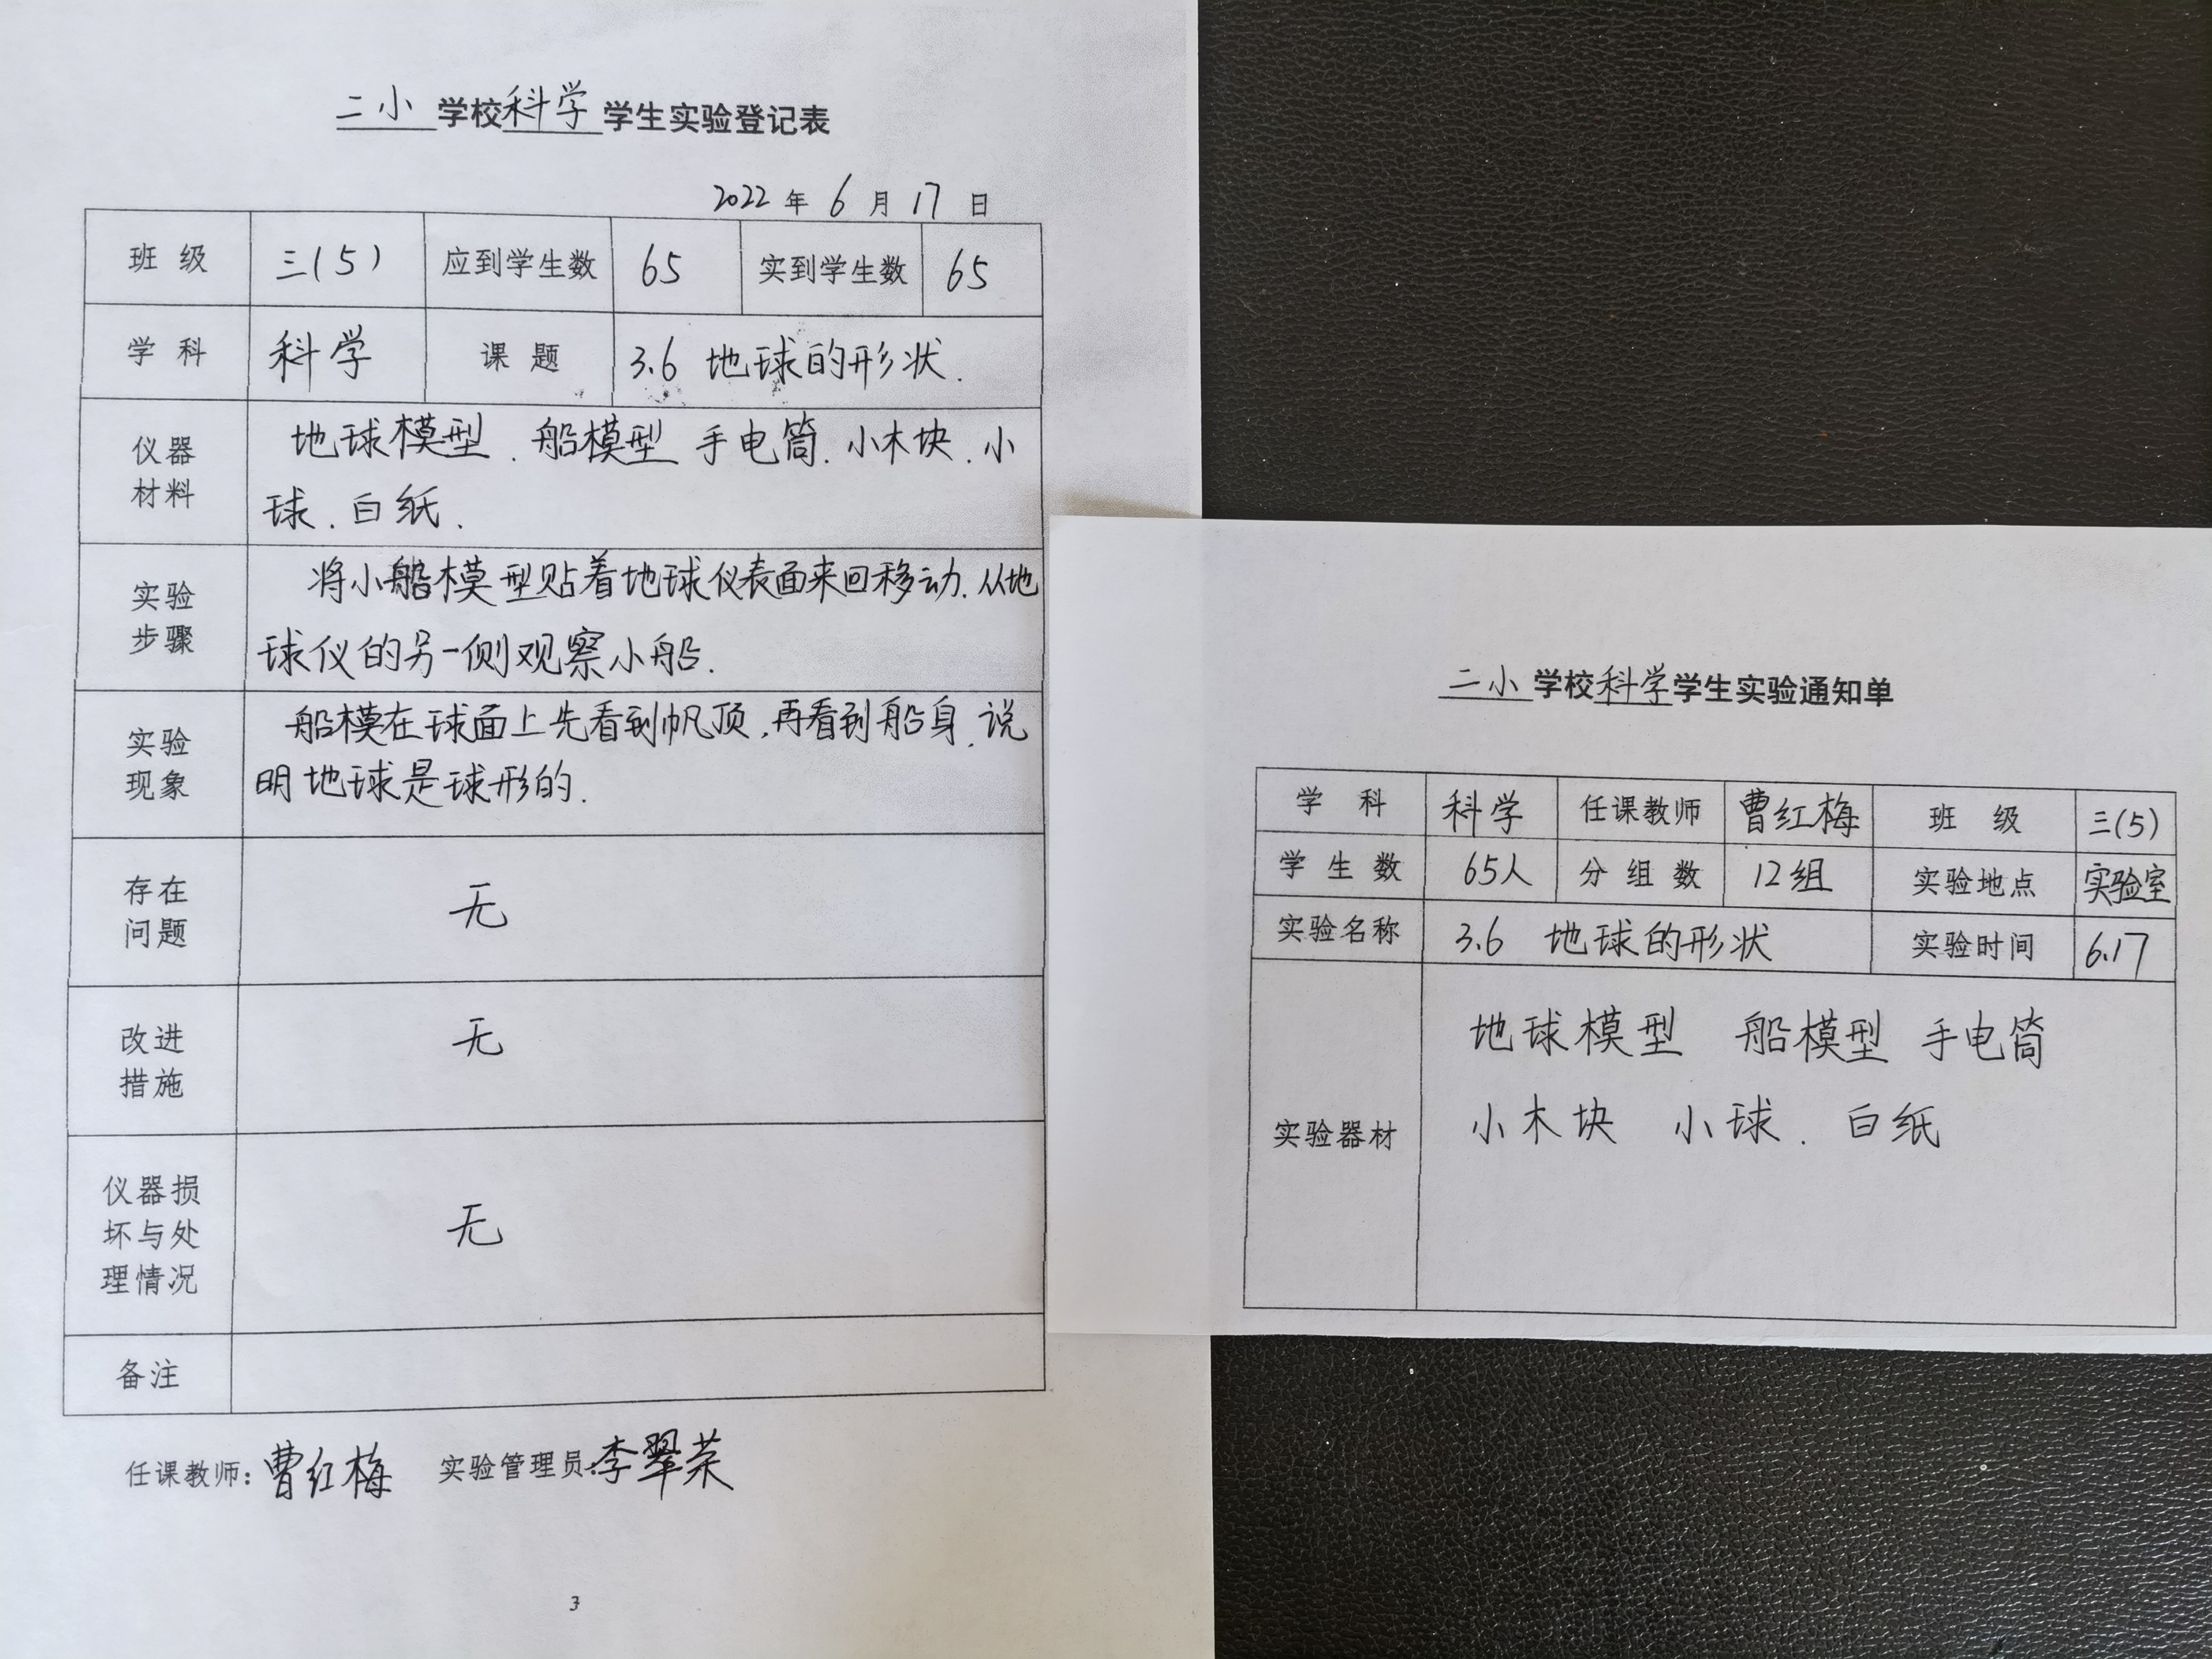 二小 学校 科学 学生实验登记表
2022 年 6 月 17 日
班 级 三(5) 应到学生数 65 实到学生数 65
学 科 科学 课 题 3.6 地球的形状.
仪器
材料
地球模型. 船模型 手电筒. 小木块. 小
球. 白纸.
实验
步骤
将小船模型贴着地球仪表面来回移动. 从地
球仪的另一侧观察小船.
实验
现象
船模在球面上先看到帆顶,再看到船身. 说
明地球是球形的.
存在
问题
无
改进
措施
无
仪器损
坏与处
理情况
无
备注
任课教师:曹红梅 实验管理员:李翠荣
3
二小 学校 科学 学生实验通知单
学 科 科学 任课教师 曹红梅 班 级 三(5)
学 生 数 65人 分 组 数 12组 实验地点 实验室
实验名称 3.6 地球的形状 实验时间 6.17
实验器材
地球模型 船模型 手电筒
小木块 小球. 白纸